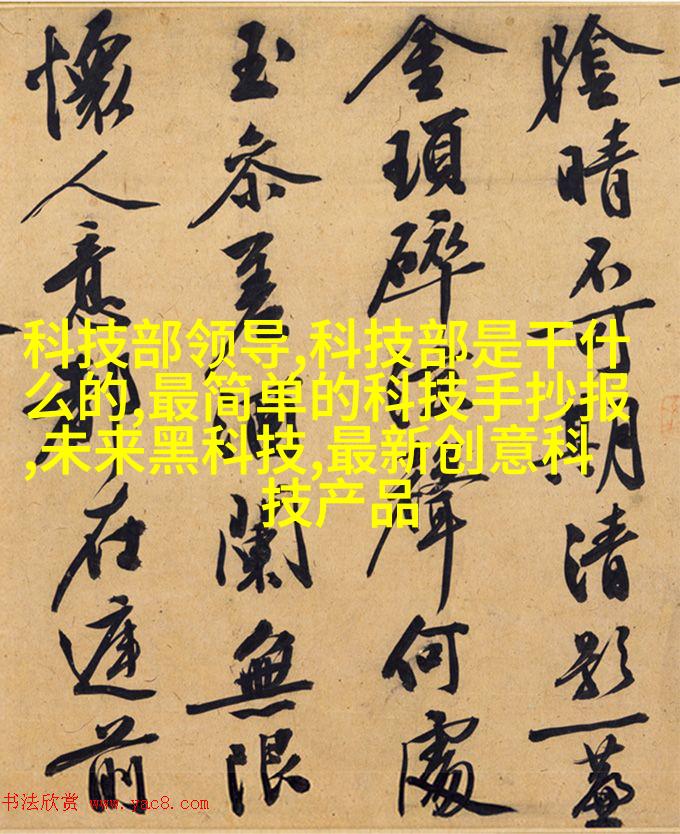 陰晴不可期清影一
金瑣碎聲何處
玉參差闌無限
懷人意在前
科技部领导,科技部是干什
么的,最简单的科技手抄报
,未来黑科技,最新创意科
技产品
书法欣赏 www.yac8.com